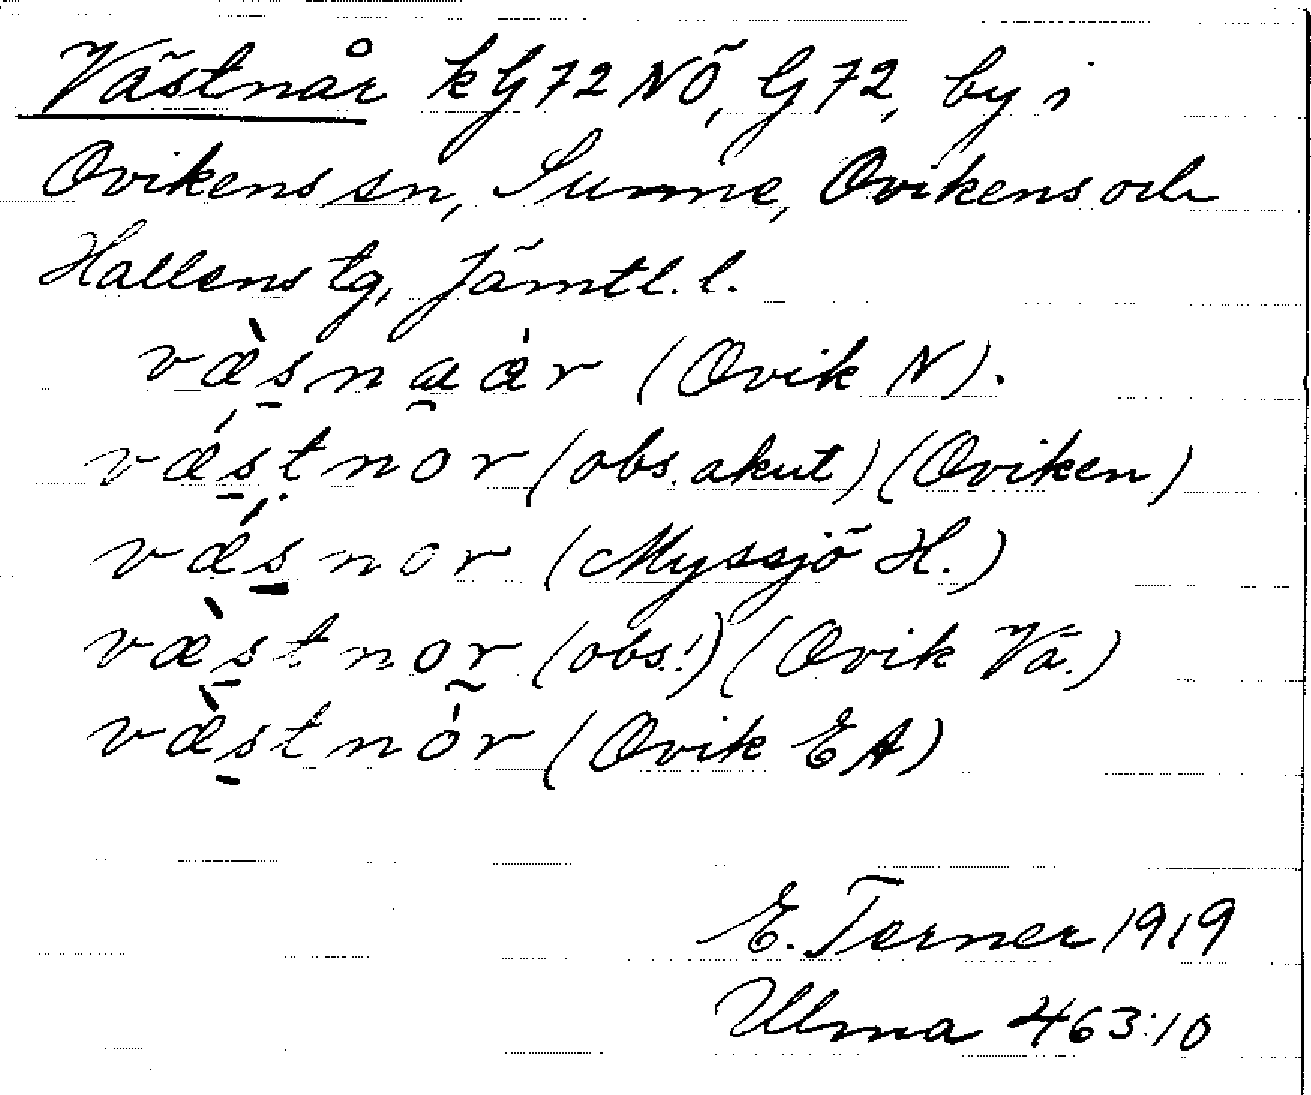 Västnår kG72NÖ, G72, by i
Ovikens sn, Sunne, Ovikens och
Hallens tg, Jämtl. l.
væ̀s̱naæ̀r (Ovik N).
vǽs̱tnor (obs. akut) (Oviken)
vǽs̱nor (Myssjö H.)
væ̀s̱tnor̰ (obs.!) (Ovik Vä.)
væ̀s̱tnòr (Ovik EA)
E. Terner 1919
Ulma 463:10